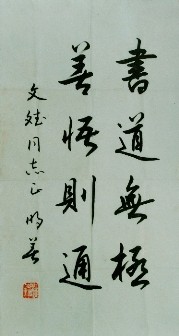 書道無極
善悟則通
文斌同志正 明善